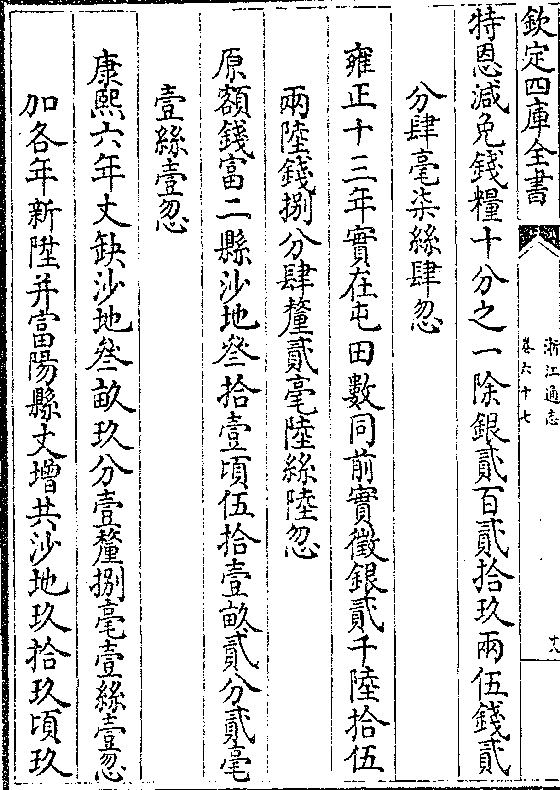 欽定四庫全書
浙江通志
卷六十七
特恩減免錢糧十分之一除銀貳百貳拾玖兩伍錢貳
分肆毫柒絲肆忽
雍正十三年實在屯田數同前實徵銀貳千陸拾伍
兩陸錢捌分肆釐貳毫陸絲陸忽
原額錢富二縣沙地叁拾壹頃伍拾壹畝貳分貳毫
壹絲壹忽
康熙六年丈缺沙地叁畝玖分壹釐捌毫壹絲壹忽
加各年新陞并富陽縣丈增共沙地玖拾玖頃玖